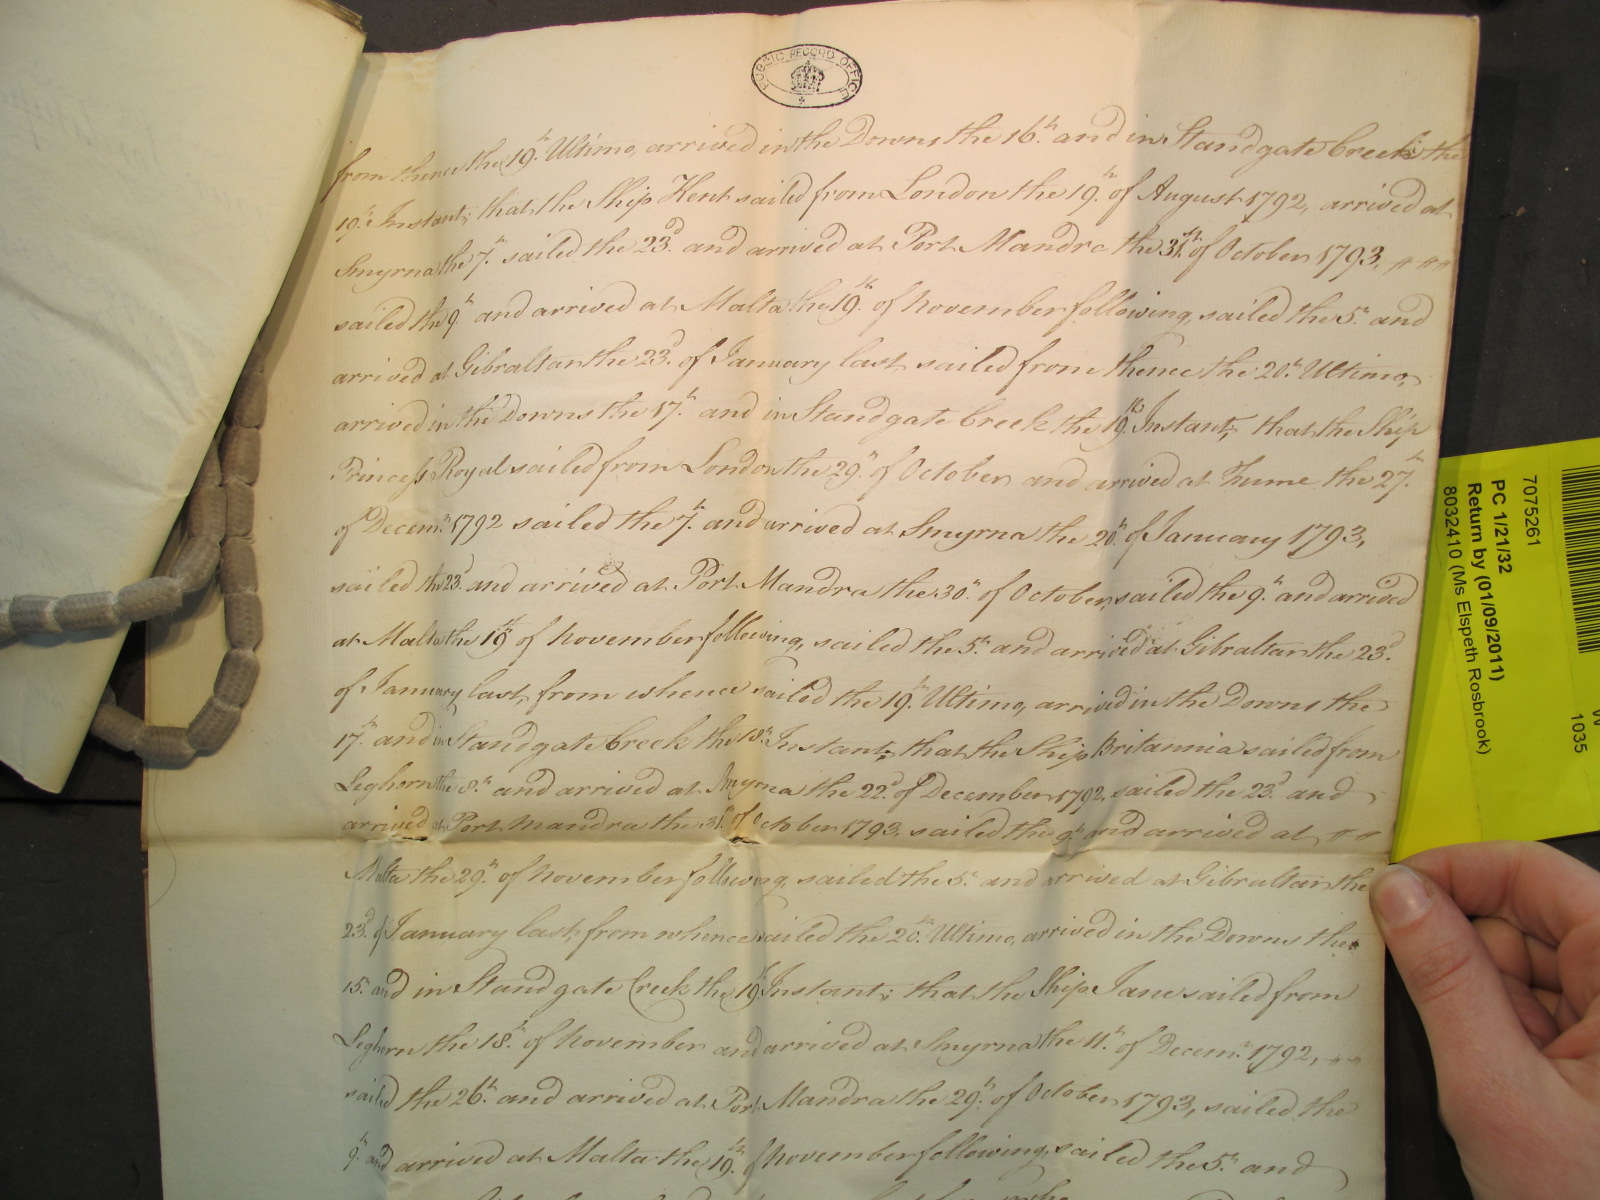 PUBLIC RECORD OFFICE
from thence the 19th Ultimo, arrived in the Downs the 16th and in Standgate Creek the
19th Instant; that the Ship Kent sailed from London the 19th of August 1792, arrived at
Smyrna the 7th sailed the 23d and arrived at Port Mandra the 31st of October 1793,
sailed the 9th and arrived at Malta the 19th of November following, sailed the 5th and
arrived at Gibraltar the 23d of January last sailed from thence the 20th Ultimo,
arrived in the Downs the 17th and in Standgate Creek the 19th Instant; that the Ship
Princess Royal sailed from London the 29th of October and arrived at Fiume the 27th
of Decemr 1792 sailed the 7th and arrived at Smyrna the 20th of January 1793,
sailed the 23d and arrived at Port Mandra the 30th of October, sailed the 9th and arrived
at Malta the 19th of November following, sailed the 5th and arrived at Gibraltar the 23d
of January last, from whence sailed the 19th Ultimo, arrived in the Downs the
17th and in Standgate Creek the 18th Instant; that the Ship Britannia sailed from
Leghorn the 8th and arrived at Smyrna the 22d of December 1792, sailed the 23d and
arrived at Port Mandra the 31st of October 1793, sailed the 9th and arrived at
Malta the 29th of November following, sailed the 5th and arrived at Gibraltar the
23d of January last, from whence sailed the 20th Ultimo, arrived in the Downs the
15th and in Standgate Creek the 19th Instant; that the Ship Jane sailed from
Leghorn the 18th of November and arrived at Smyrna the 11th of Decemr 1792,
sailed the 26th and arrived at Port Mandra the 29th of October 1793, sailed the
9th and arrived at Malta the 19th of November following, sailed the 5th and
7075261
PC 1/21/32
Return by (01/09/2011)
8032410 (Ms Elspeth Rosbrook)
1035